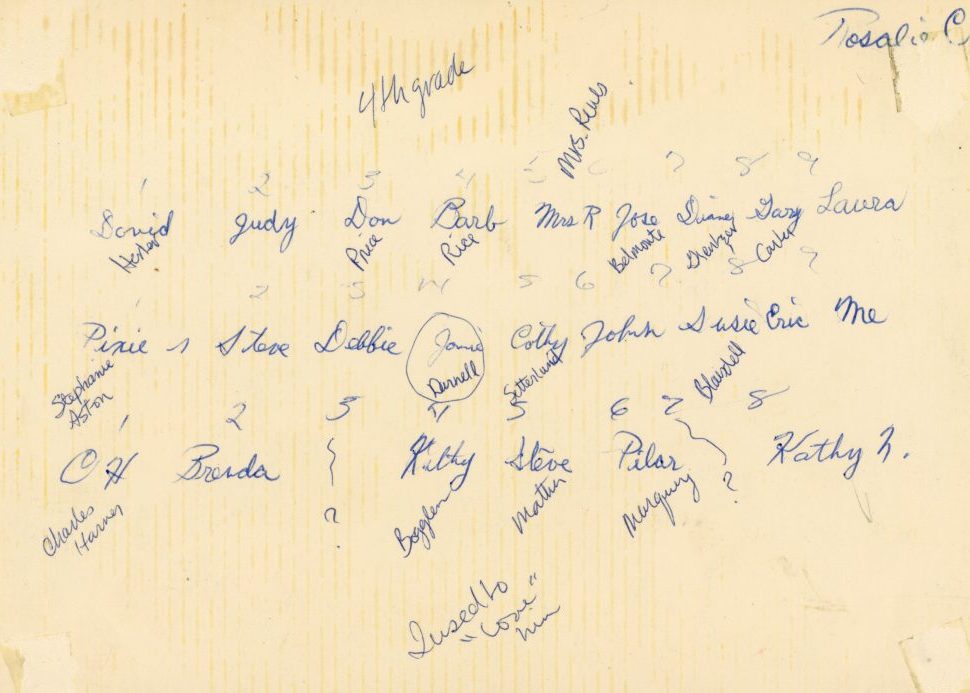 Rosalie C
4th grade
Mrs.
1 2 3 4 5 6 7 8 9
David Judy Don Barb Mrs R Jose Gary Laura
Price Rice Belmonte
1 2 3 4 5 6 7 8 9
Pixie Steve Debbie Jamie Cathy John Susie Eric Me
Stephanie Aston Darnell Setterlund Blaisdell
1 2 3 4 5 6 7 8
C H Brenda ? Kathy Steve Pilar ? Kathy N.
Charles
I used to
"love"
him